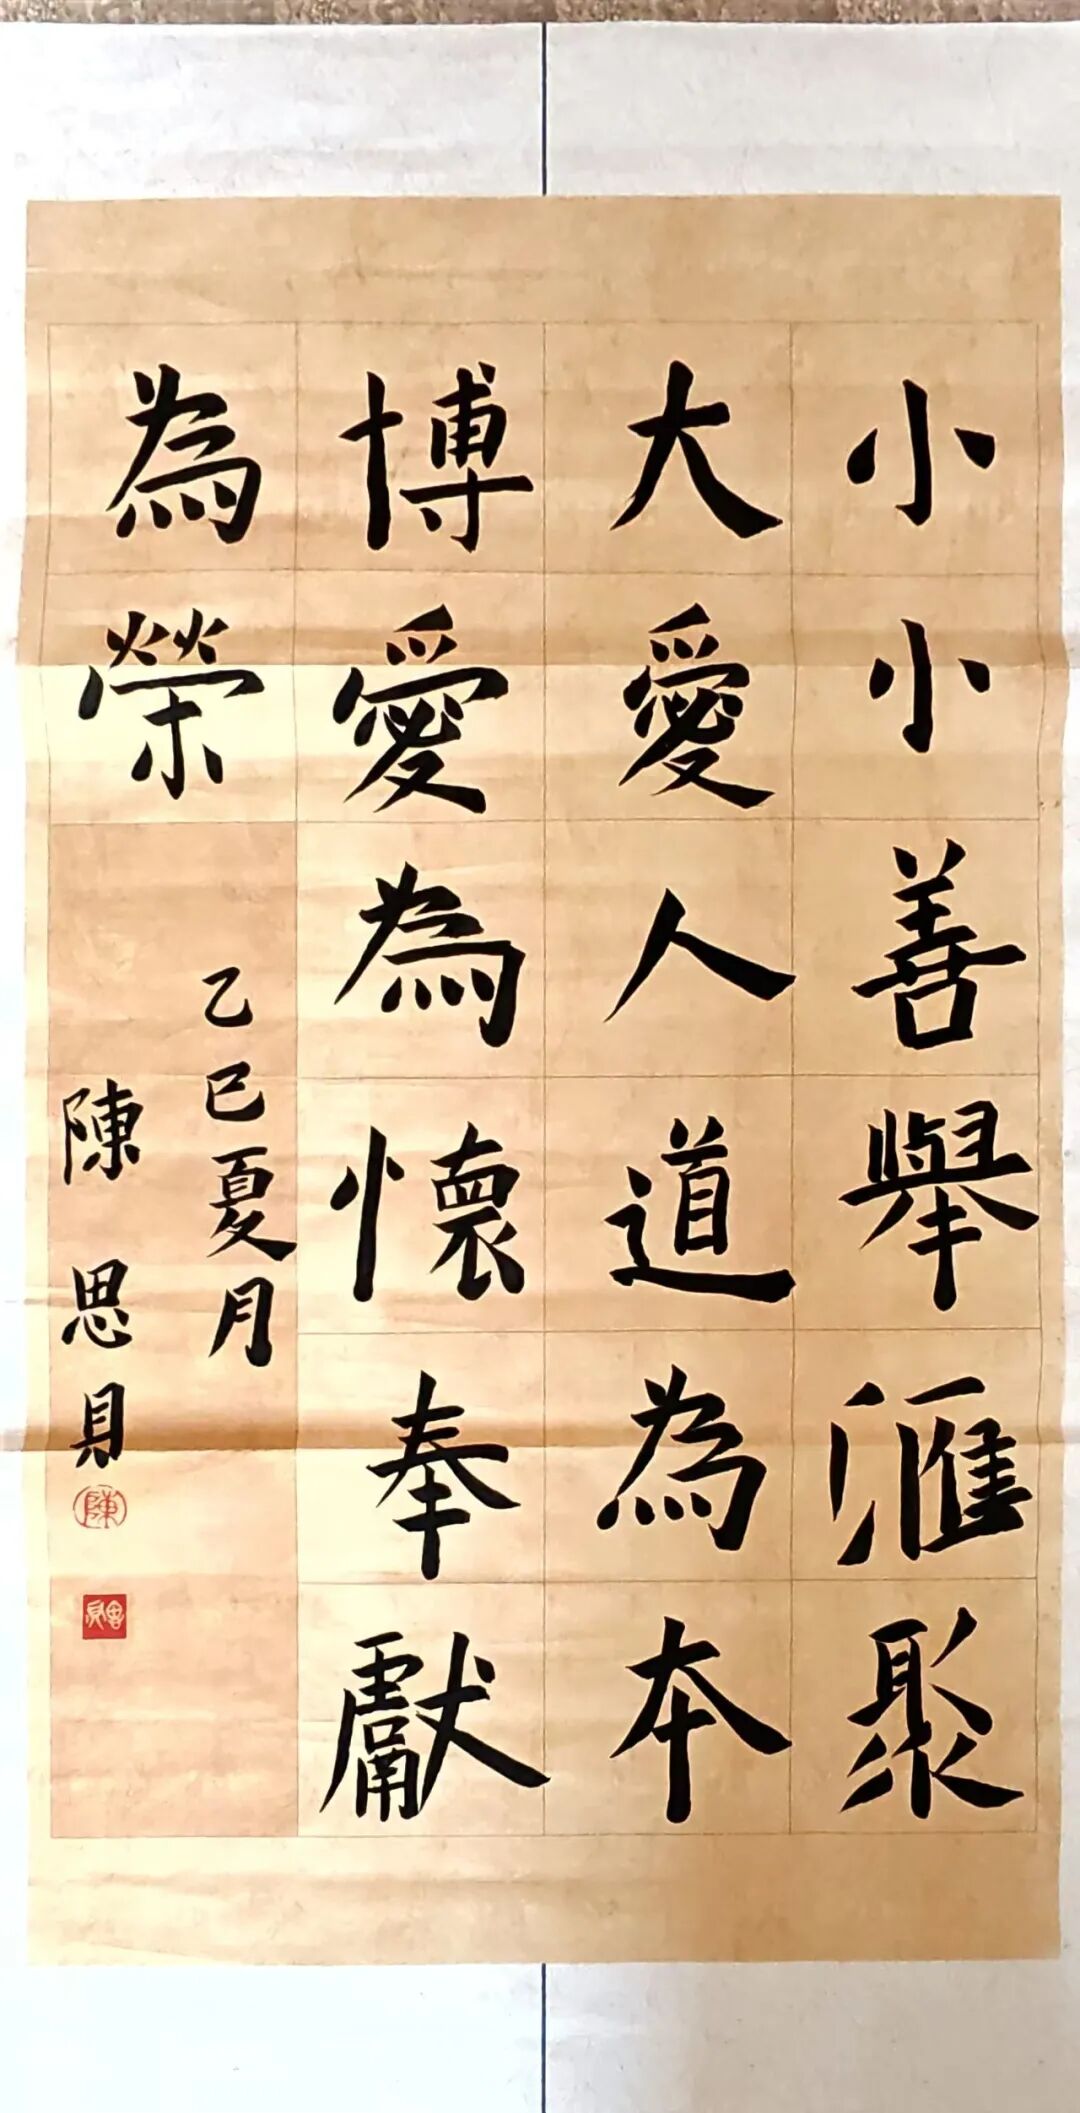 小小善舉滙聚
大愛人道為本
博愛為懷奉獻
為榮
乙巳夏月
陳思
陳